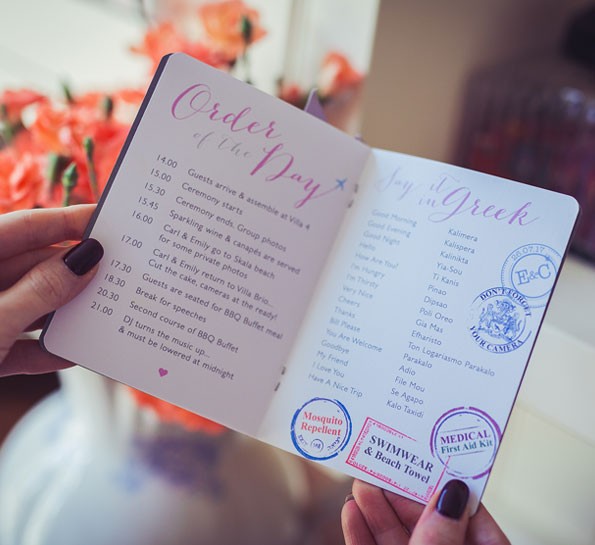 Order
of the Day
14.00 Guests arrive & assemble at Villa 4
15.00 Ceremony starts
15.30 Ceremony ends. Group photos
15.45 Sparkling wine & canapés are served
16.00 Carl & Emily go to Skala beach
for some private photos
17.00 Carl & Emily return to Villa Brio...
Cut the cake, cameras at the ready!
17.30 Guests are seated for BBQ Buffet meal
18.30 Break for speeches
20.30 Second course of BBQ Buffet
21.00 DJ turns the music up..
& must be lowered at midnight
Say it
in Greek
Good Morning Kalimera
Good Evening Kalispera
Good Night Kalinikta
Hello Yia-Sou
How Are You? Ti Kanis
I'm Hungry Pinao
I'm Thirsty Dipsao
Very Nice Poli Oreo
Cheers Gia Mas
Thanks Efharisto
Bill Please Ton Logariasmo Parakalo
You Are Welcome Parakalo
Goodbye Adio
My Friend File Mou
I Love You Se Agapo
Have A Nice Trip Kalo Taxidi
26.07.17
E&C
DON'T FORGET
YOUR CAMERA
Mosquito
Repellent
SWIMWEAR
& Beach Towel
MEDICAL
First Aid Kit